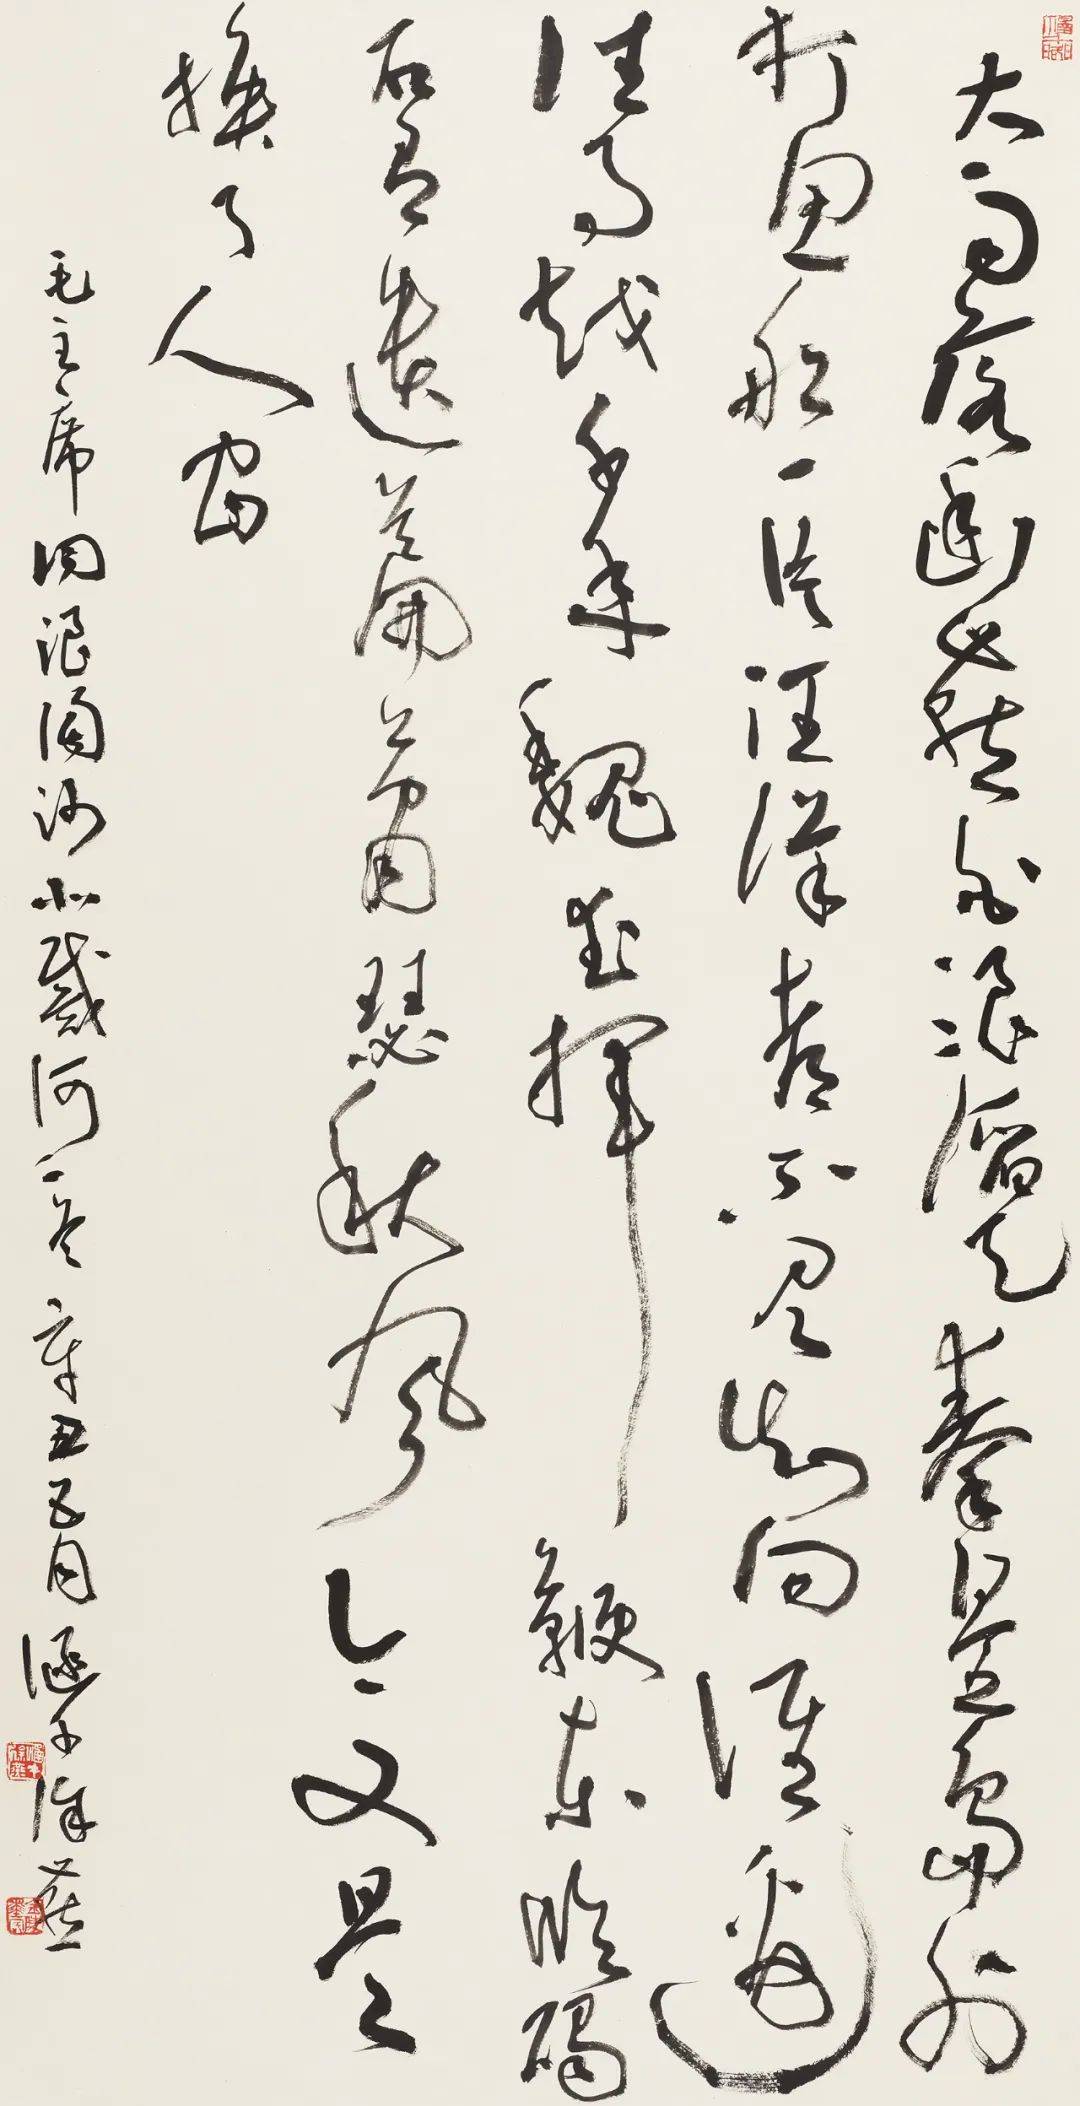 大雨落幽燕白浪滔天秦皇島外
打魚船一片汪洋都不見知向誰邊
往事越千年魏武揮鞭東臨碣
石有遺篇蕭瑟秋風今又是
換了人間
毛主席詞浪淘沙北戴河一首 辛丑五月